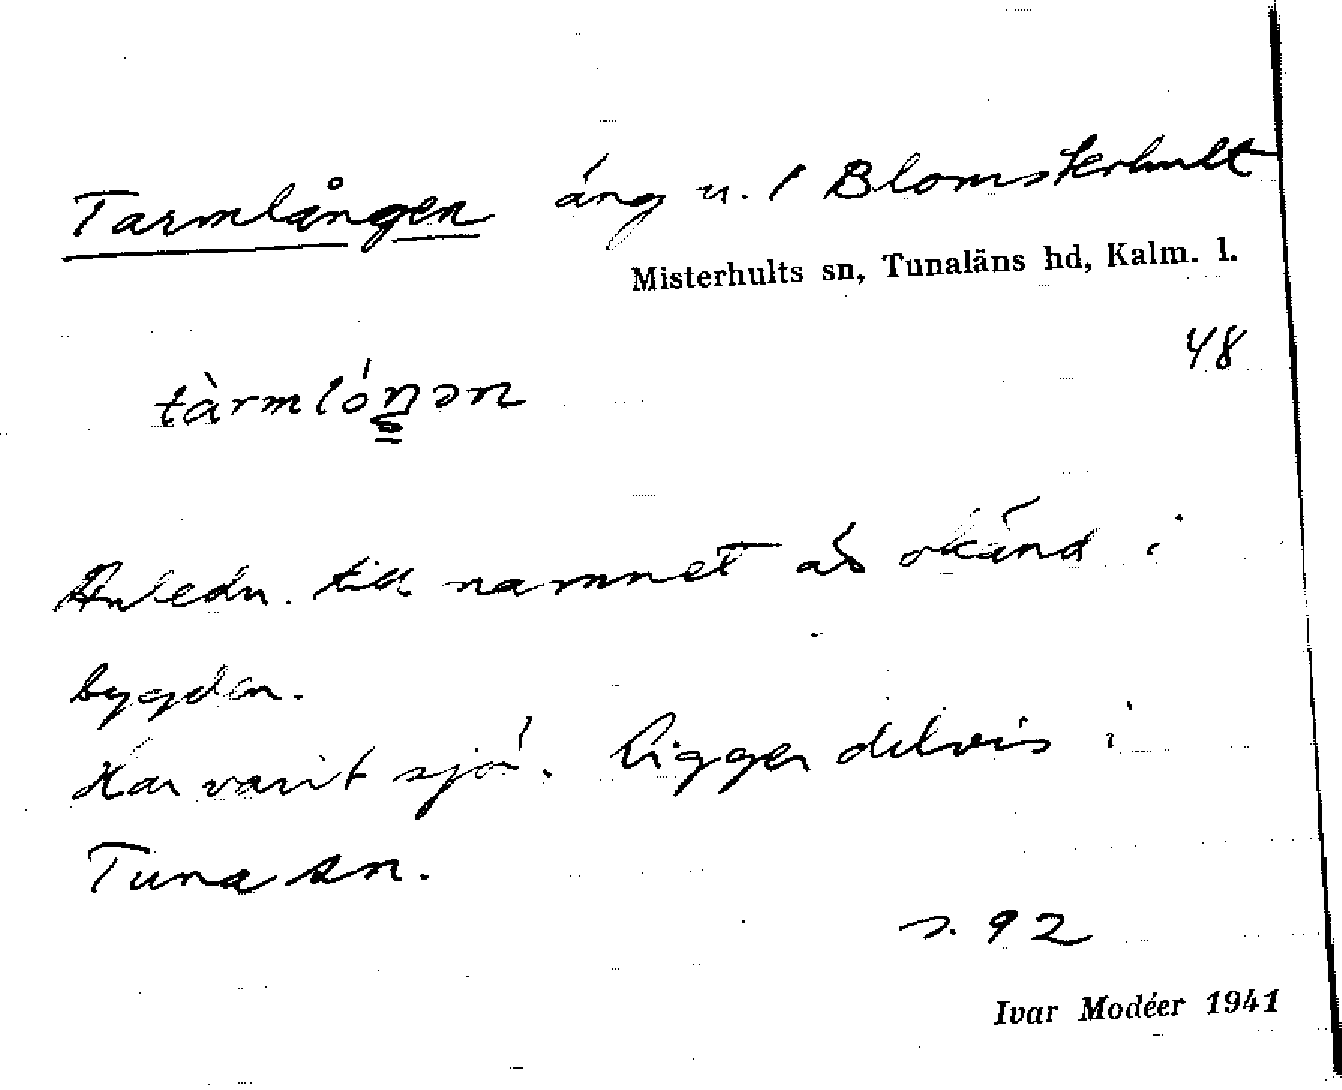 Tarmlången äng u. / Blomsterhult
Misterhults sn, Tunaläns hd, Kalm. l.
48
tàrmlóŋən
Anledn. till namnet är okänd i
bygden.
Har varit sjö. Ligger delvis i
Tuna sn.
s. 92
Ivar Modéer 1941